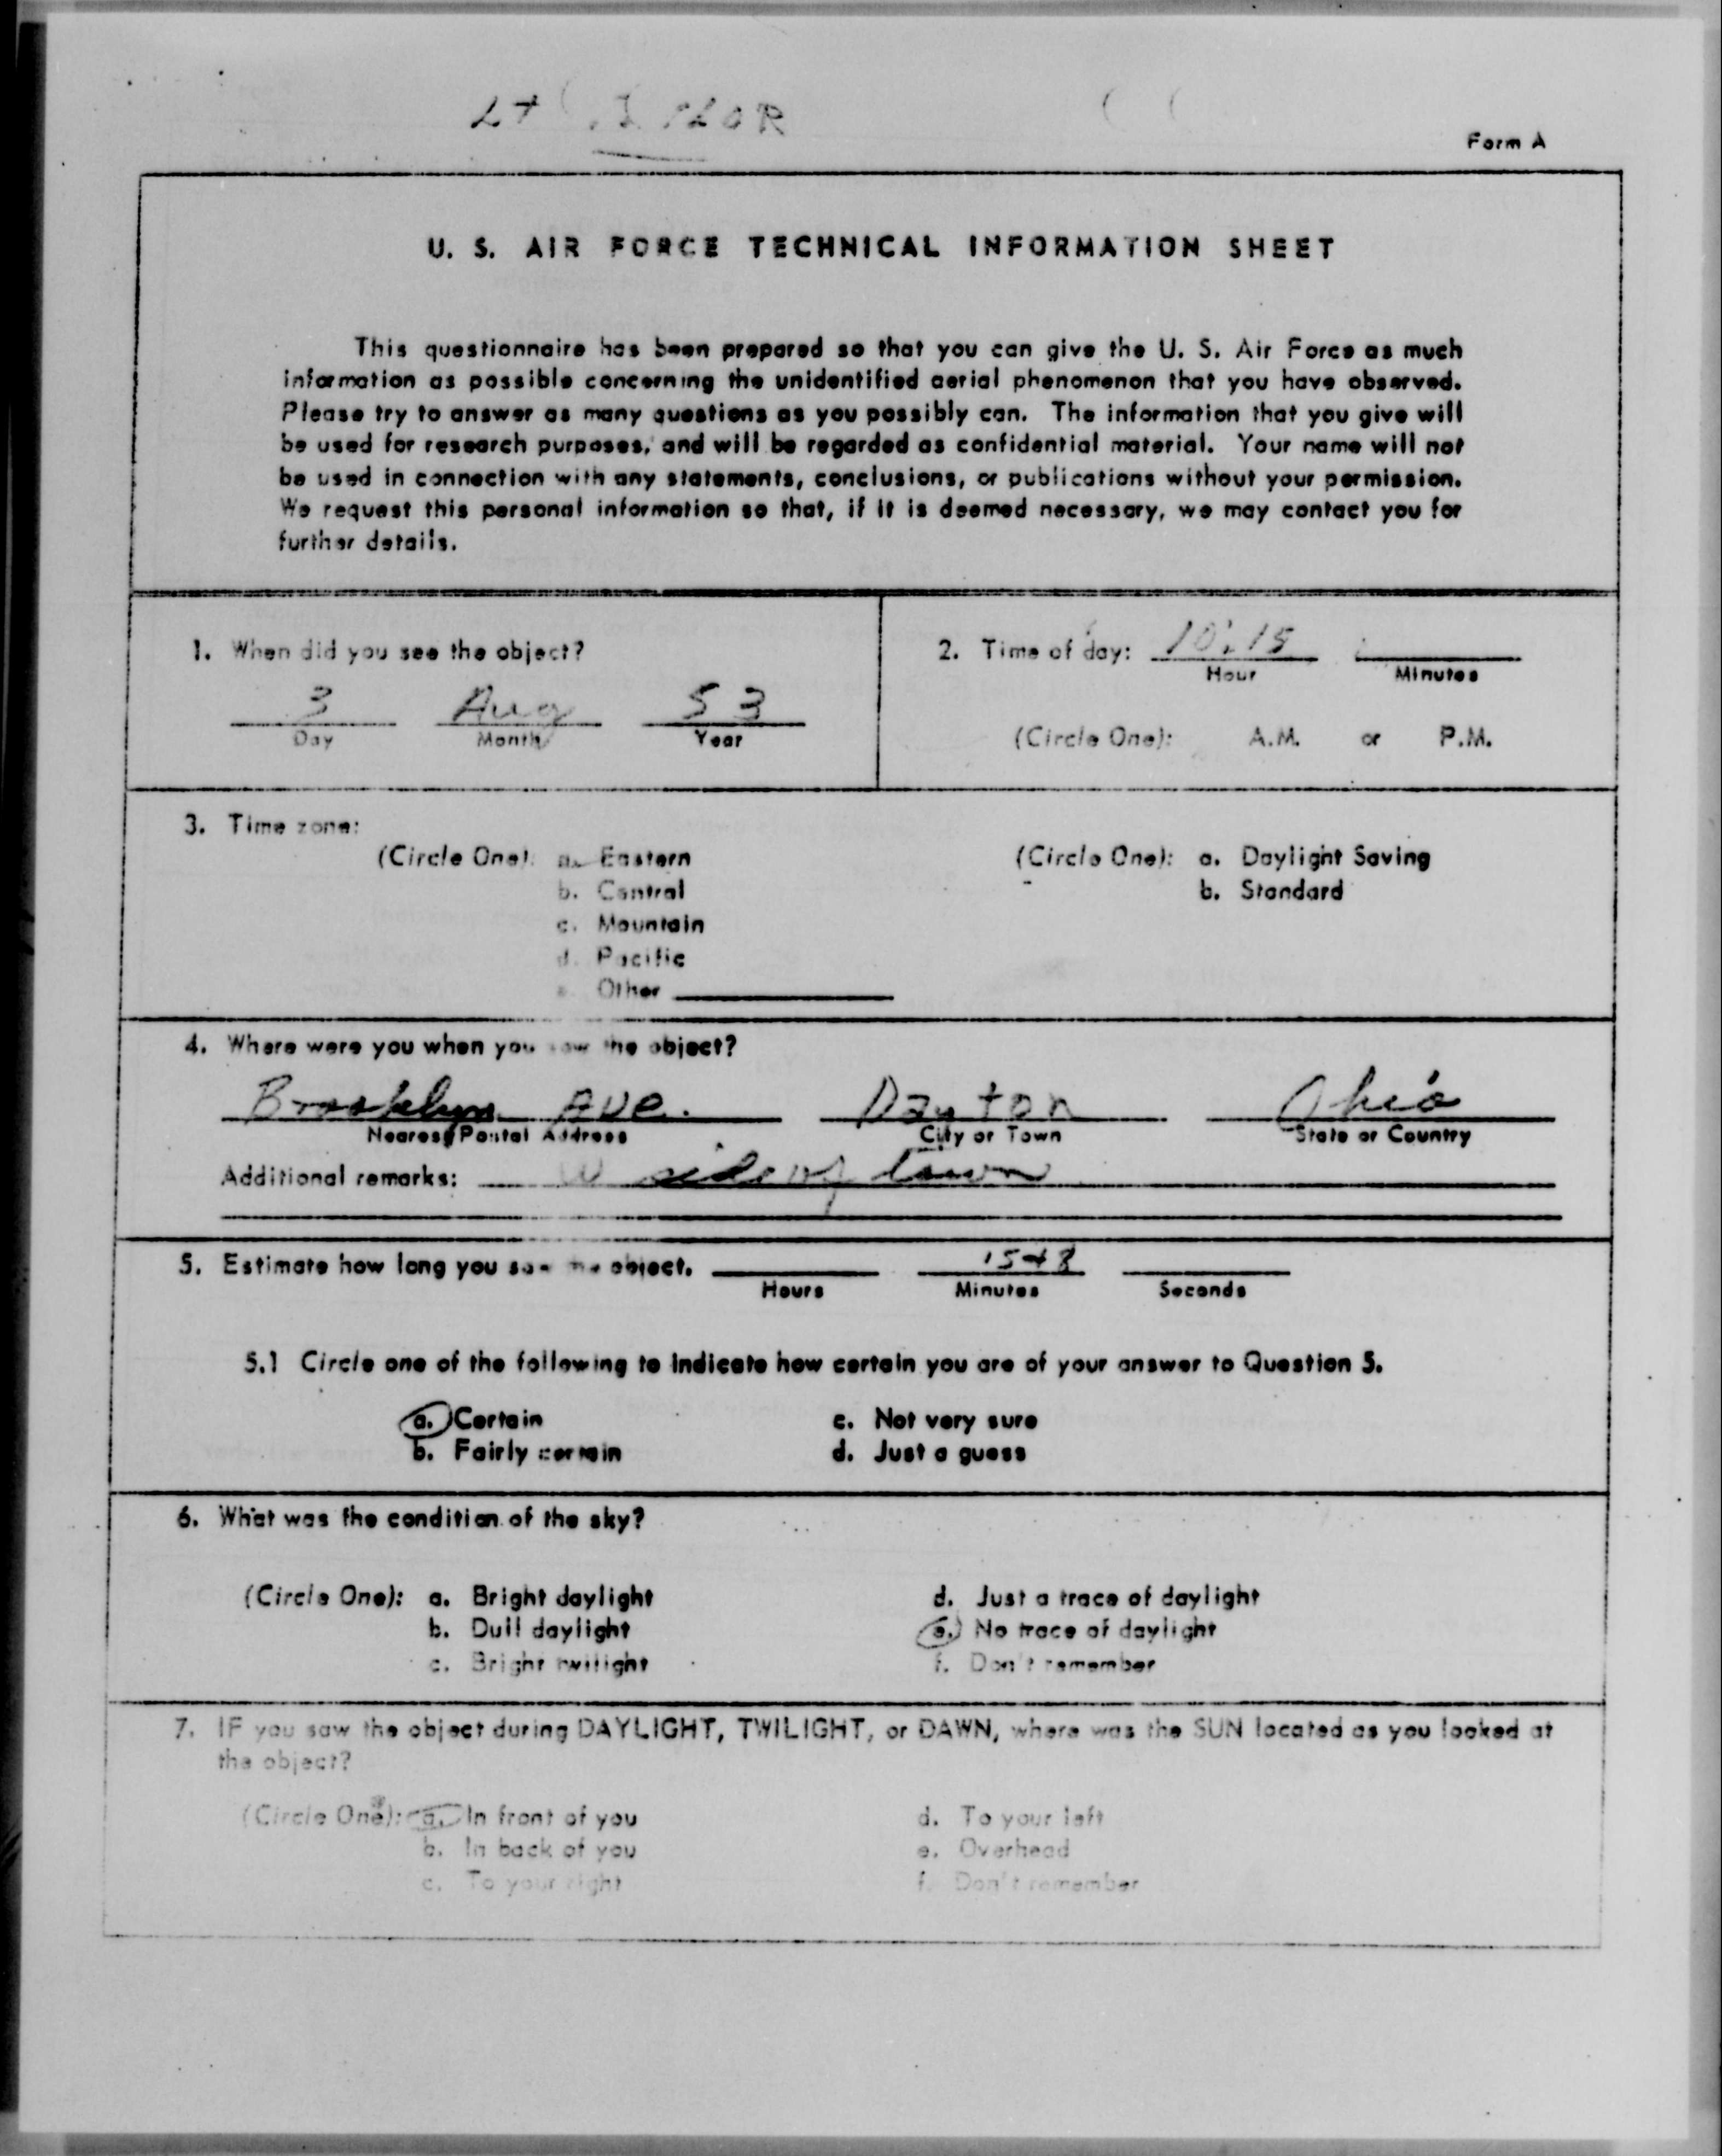 Lt
Form A
U. S. AIR FORCE TECHNICAL INFORMATION SHEET
This questionnaire has been prepared so that you can give the U. S. Air Force as much
information as possible concerning the unidentified aerial phenomenon that you have observed.
Please try to answer as many questions as you possibly can. The information that you give will
be used for research purposes, and will be regarded as confidential material. Your name will not
be used in connection with any statements, conclusions, or publications without your permission.
We request this personal information so that, if it is deemed necessary, we may contact you for
further details.
1. When did you see the object?
3 Aug 53
Day Month Year
2. Time of day: 10:15
Hour Minutes
(Circle One): A.M. or P.M.
3. Time zone:
(Circle One): a. Eastern
b. Central
c. Mountain
d. Pacific
e. Other
(Circle One): a. Daylight Saving
b. Standard
4. Where were you when you saw the object?
Brooklyn Ave. Dayton Ohio
Nearest Postal Address City or Town State or Country
Additional remarks: W side of town
5. Estimate how long you saw the object.
Hours Minutes Seconds
5.1 Circle one of the following to indicate how certain you are of your answer to Question 5.
a. Certain c. Not very sure
b. Fairly certain d. Just a guess
6. What was the condition of the sky?
(Circle One): a. Bright daylight d. Just a trace of daylight
b. Dull daylight e. No trace of daylight
c. Bright twilight f. Don't remember
7. IF you saw the object during DAYLIGHT, TWILIGHT, or DAWN, where was the SUN located as you looked at
the object?
(Circle One): a. In front of you d. To your left
b. In back of you e. Overhead
c. To your right f. Don't remember